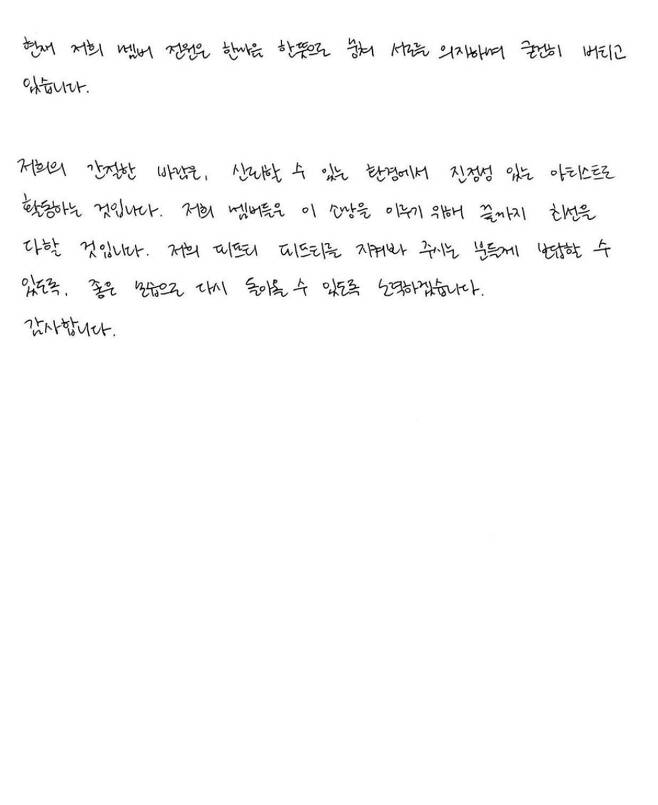 현재 저희 멤버 전원은 한마음 한뜻으로 뭉쳐 서로를 의지하며 굳건히 버티고
있습니다.
저희의 간절한 바람은, 신뢰할 수 있는 환경에서 진정성 있는 아티스트로
활동하는 것입니다. 저희 멤버들은 이 소망을 이루기 위해 끝까지 최선을
다할 것입니다. 저희 지켜봐 주시는 분들께 보답할 수
있도록, 좋은 모습으로 다시 돌아올 수 있도록 노력하겠습니다.
감사합니다.